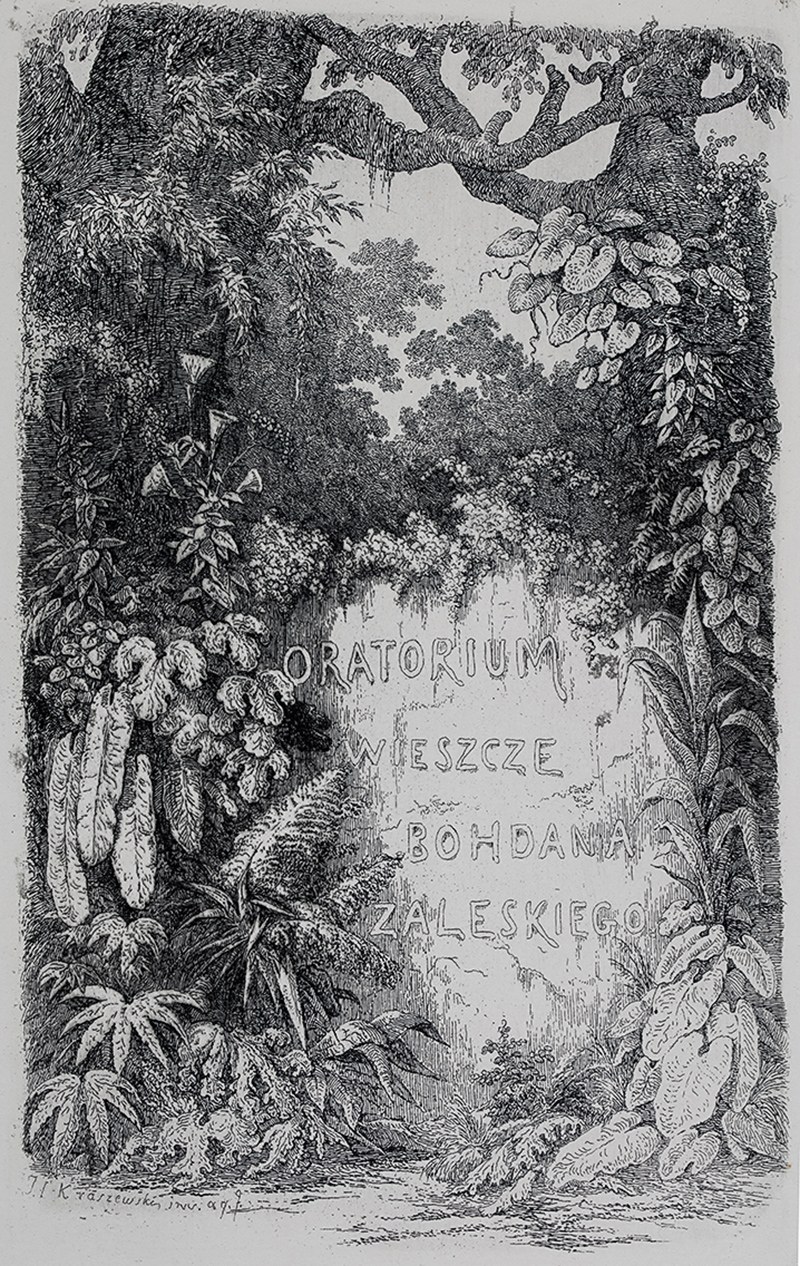 ORATORIUM
WIESZCZE
BOHDANA
ZALESKIEGO
J I Kraszewski inv.